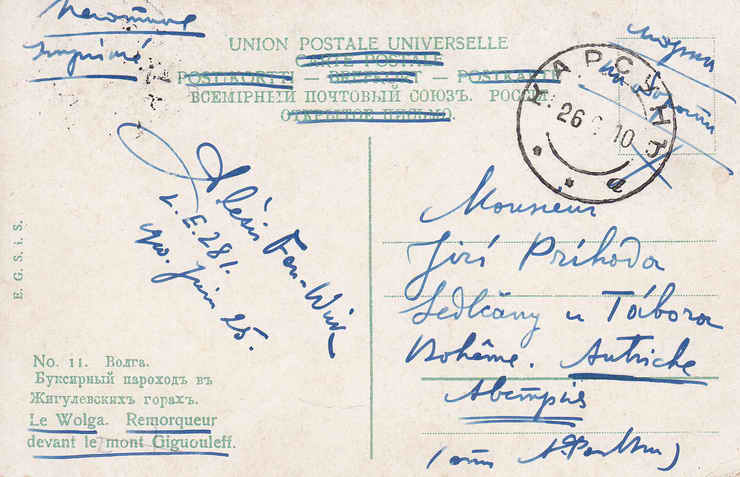 Печатное
Imprimé
UNION POSTALE UNIVERSELLE
CARTE POSTALE
POSTKORTE — BREFKORT — POSTKARTE
ВСЕМІРНЫЙ ПОЧТОВЫЙ СОЮЗЪ. РОССІЯ
ОТКРЫТОЕ ПИСЬМО.
марка
на обороти
КАРСУНЪ
26 10
а
Alexis Fen-Wick
L. E. 281.
Juin 25.
Monsieur
Jiří Príhoda
Sedlčány u Tábora
Bohême. Autriche
Австрія
E. G. S. i. S.
No. 11. Волга.
Буксирный пароходъ въ
Жигулевскихъ горахъ.
Le Wolga. Remorqueur
devant le mont Giguouleff.